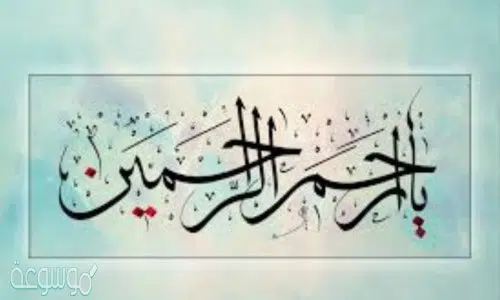 يا أرحم الراحمين
موسوعة